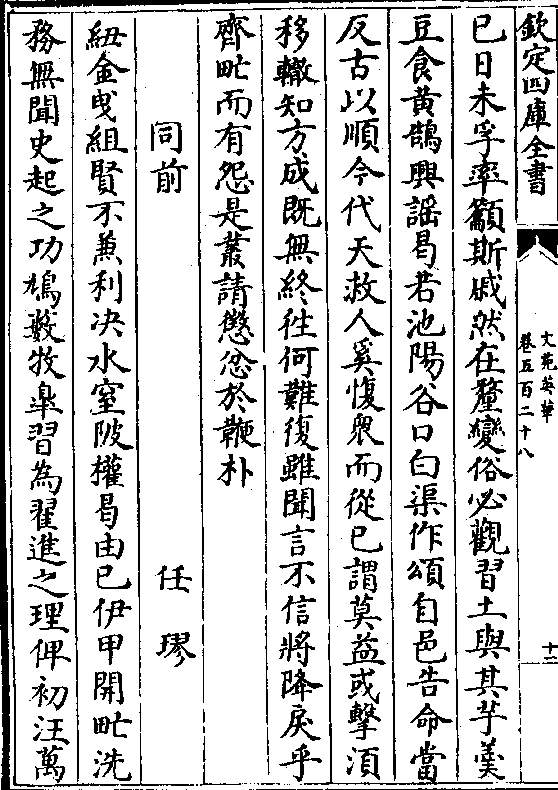 欽定四庫全書
文苑英華
卷五百二十八
十二
已日未孚率籲斯戚然在釐變俗必觀習土與其芋羮
豆食黄鵠興謡曷若池陽谷口白渠作頌自邑告命當
反古以順今代天救人奚愎衆而從已謂莫益或擊湏
移轍知方成既無終往何難復雖聞言不信將降戾乎
齊甿而有怨是叢請懲忿於鞭朴
同前
任璆
紐金曳組賢不兼利决水窒陂權曷由已伊甲開甿洗
務無聞史起之功鳩藪牧臯習為翟進之理俾初汪萬